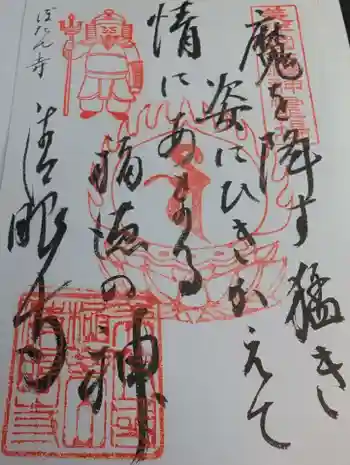 魔を降す猛き
姿にひきかえて
情にあまる
福徳の神
ぼたん寺
清眼寺